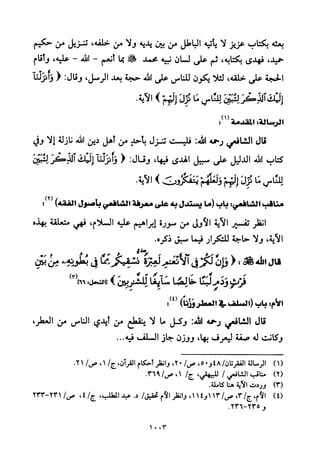 بعثه بكتاب عزيز لا يأتيه الباطل من بين يديه ولا من خلفه، تنزيل من حكيم
حميد، فهدى بكتابه، ثم على لسان نبيه محمد ﷺ بما أنعم - الله - عليه، وأقام
الحجة على خلقه، لئلا يكون للناس على الله حجة بعد الرسل، وقال: ﴿ وَأَنزَلْنَآ
إِلَيْكَ ٱلذِّكْرَ لِتُبَيِّنَ لِلنَّاسِ مَا نُزِّلَ إِلَيْهِمْ ﴾ الآية.
الرسالة: المقدمة (١):
قال الشافعي رحمه الله: فليست تنزل بأحد من أهل دين الله نازلة إلا وفي
كتاب الله الدليل على سبيل الهدى فيها، وقال: ﴿ وَأَنزَلْنَآ إِلَيْكَ ٱلذِّكْرَ لِتُبَيِّنَ
لِلنَّاسِ مَا نُزِّلَ إِلَيْهِمْ وَلَعَلَّهُمْ يَتَفَكَّرُونَ ﴾ الآية.
مناقب الشافعي: باب (ما يستدل به على معرفة الشافعي بأصول الفقه) (٢):
انظر تفسير الآية الأولى من سورة إبراهيم عليه السلام، فهي متعلقة بهذه
الآية، ولا حاجة للتكرار فيما سبق ذكره.
قال الله ﷻ: ﴿ وَإِنَّ لَكُمْ فِى ٱلْأَنْعَـٰمِ لَعِبْرَةً نُّسْقِيكُم مِّمَّا فِى بُطُونِهِۦ مِنۢ بَيْنِ
فَرْثٍ وَدَمٍ لَّبَنًا خَالِصًا سَآئِغًا لِّلشَّـٰرِبِينَ ﴾ [النحل: ٦٦] (٣)
الأم: باب (السلف في العطر وزنًا) (٤):
قال الشافعي رحمه الله: وكل ما لا ينقطع من أيدي الناس من العطر،
وكانت له صفة ليعرف بها، ووزن جاز السلف فيه...
(١) الرسالة الفقرتان/ ٤٨ و٥٠، ص/ ٢٠، وانظر أحكام القرآن، ج/ ١، ص/ ٢١.
(٢) مناقب الشافعي / للبيهقي، ج/ ١، ص/ ٣٦٩.
(٣) وردت الآية هنا كاملة.
(٤) الأم، ج/ ٣، ص/ ١١٣ و١١٤، وانظر الأم تحقيق/ د. عبد المطلب، ج/ ٤، ص/ ٢٣١-٢٣٣
و ٢٣٥-٢٣٦.
١٠٠٣